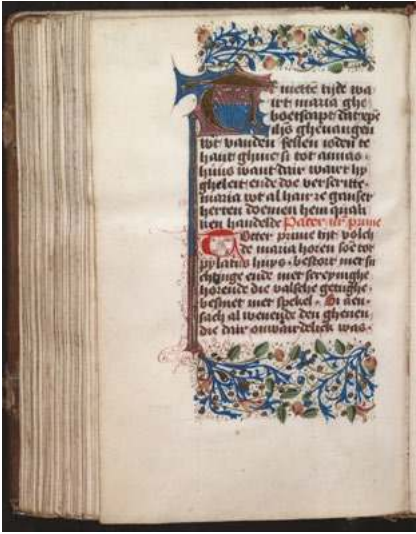 Te mette tijde wa
maria ghe
boetscapt dat
ihs gheuangen
wt vanden fellen ioden te
hant ghinc si tot annas
huus want dair wart hy
gheleit ende doe verscricte
maria wt al hair re ganser
herten doemen hem quali
ken handelde Pater nr prime
Totter prime tijt volch
de maria horen soē tot
pylatus huys · bestort met su
chtinge ende met screyinghe
horende die valsche getughe
besmet met spekel · Si aen
sach al wenende den ghenen
die dair onwairdelick was ·